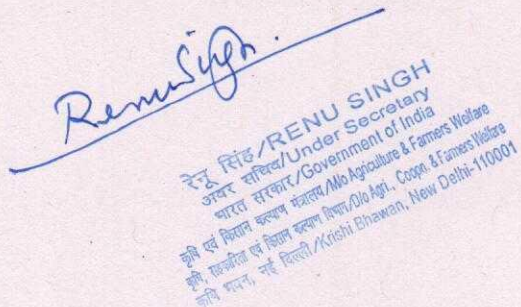 Renu Singh.
रेनू सिंह/RENU SINGH
अवर सचिव/Under Secretary
भारत सरकार/Government of India
कृषि एवं किसान कल्याण मंत्रालय/M/o Agriculture & Farmers Welfare
कृषि, सहकारिता एवं किसान कल्याण विभाग/D/o Agri., Coopn. & Farmers Welfare
कृषि भवन, नई दिल्ली/Krishi Bhawan, New Delhi-110001